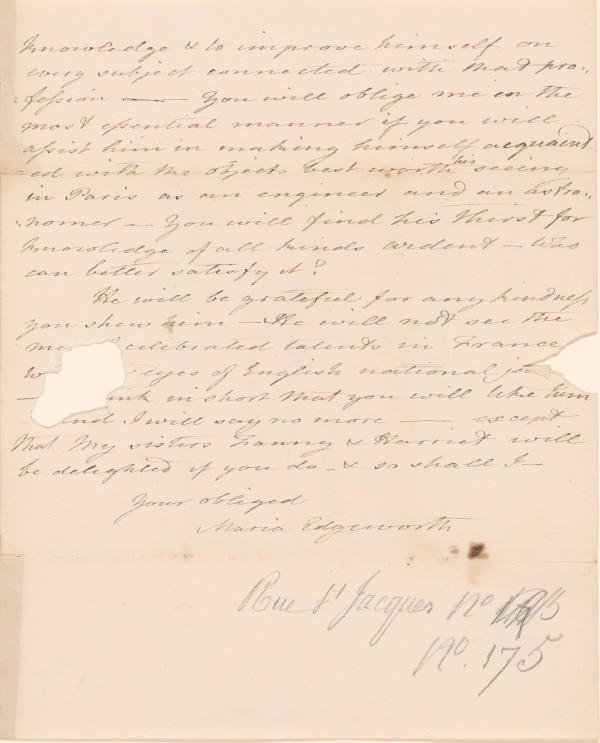 knowledge & to improve himself on
every subject connected with that pro-
:fession — You will oblige me in the
most essential manner if you will
assist him in making himself acquaint
ed with the objects best worth his seeing
in Paris as an engineer and an astro-
:nomer — You will find his thirst for
knowledge of all kinds ardent — Who
can better satisfy it?
He will be grateful for any kindness
you shew him — He will not see the
celebrated talents in France
eyes of English national
— in short that you will like him
— and I will say no more — except
that my sisters Fanny & Harriet will
be delighted if you do — & so shall I —
Your obliged
Maria Edgeworth
Rue St Jacques No
No. 175